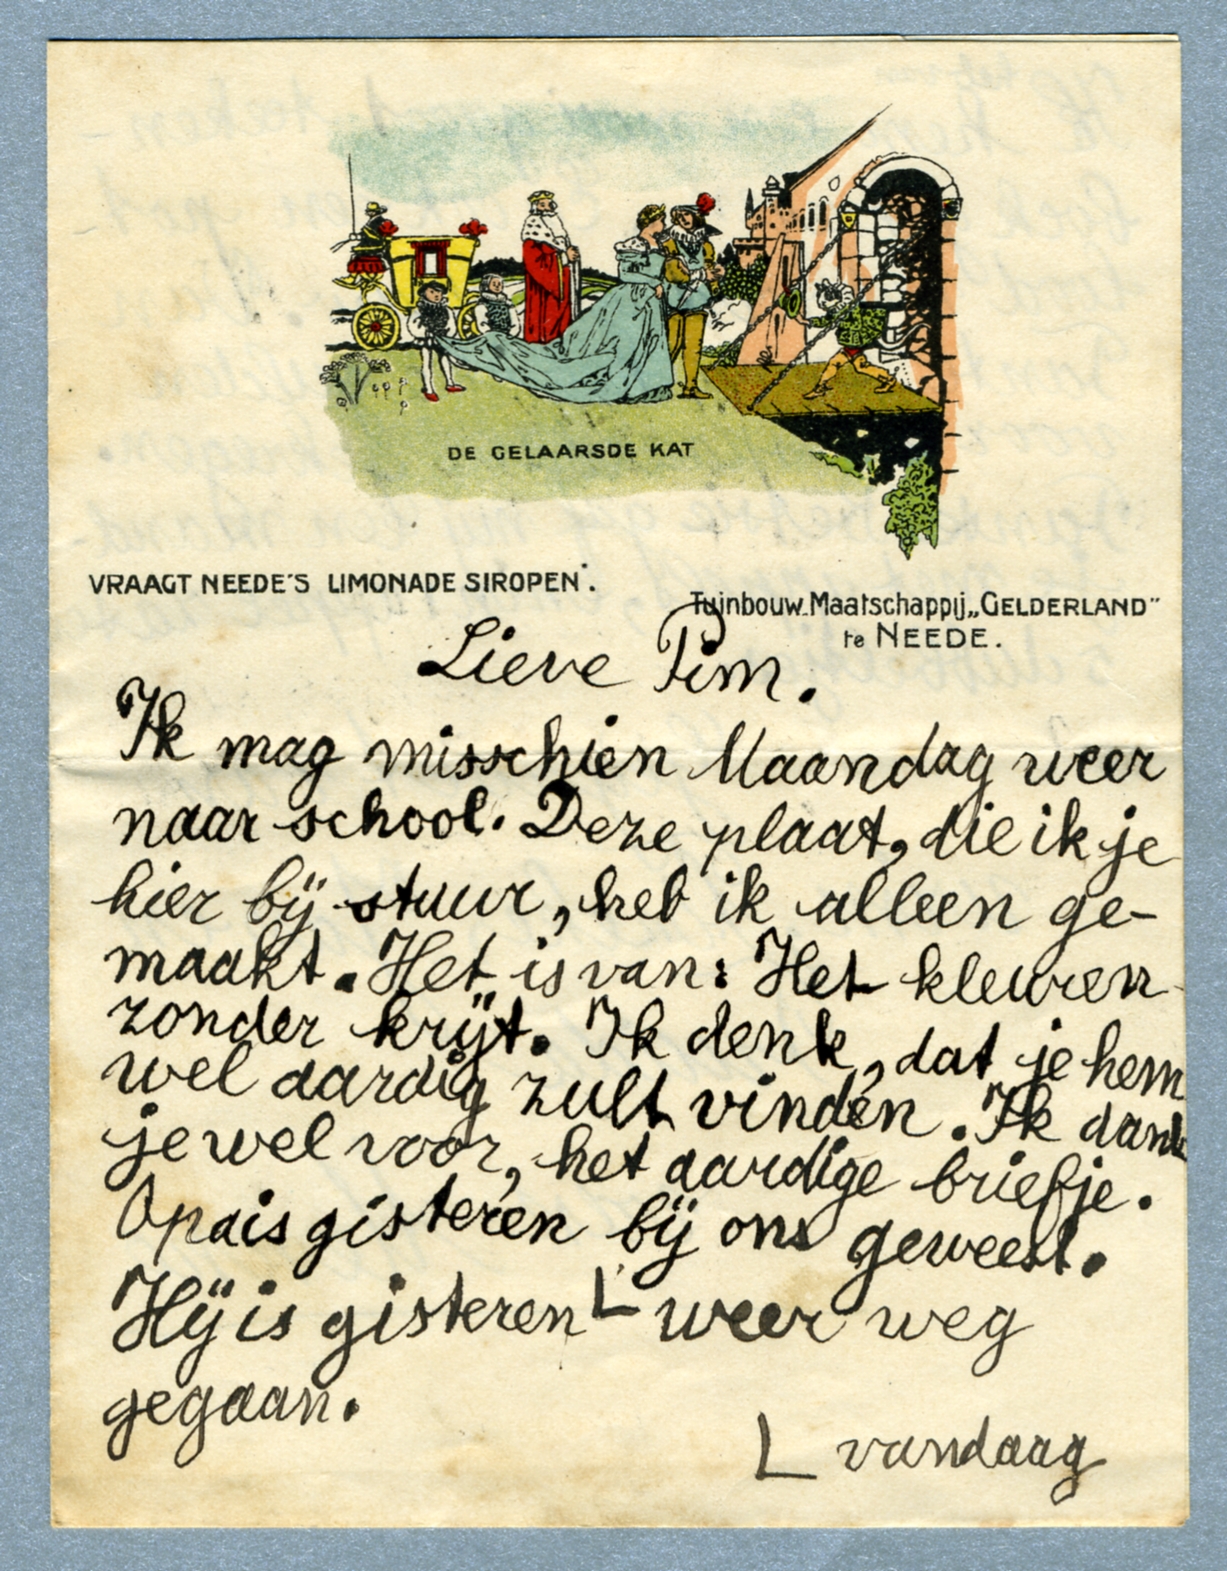 DE GELAARSDE KAT
VRAAGT NEEDE'S LIMONADE SIROPEN.
Tuinbouw-Maatschappij „GELDERLAND"
te NEEDE.
Lieve Pim.
Ik mag misschien Maandag weer
naar school. Deze plaat, die ik je
hier bij stuur, heb ik alleen ge-
maakt. Het is van: Het kleuren
zonder krijt. Ik denk, dat je hem
wel aardig zult vinden. Ik dank
je wel voor, het aardige briefje.
Opa is gisteren bij ons geweest.
Hij is gisteren L weer weg
gegaan.
L vandaag